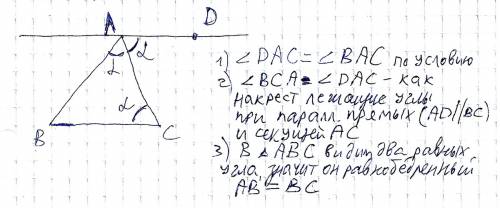 A
D
α
α
α
B
C
1) ∠DAC = ∠BAC по условию
2) ∠BCA = ∠DAC - как
накрест лежащие углы
при паралл. прямых (AD||BC)
и секущей AC
3) В △ABC видим два равных
угла, значит он равнобедренный
AB = BC